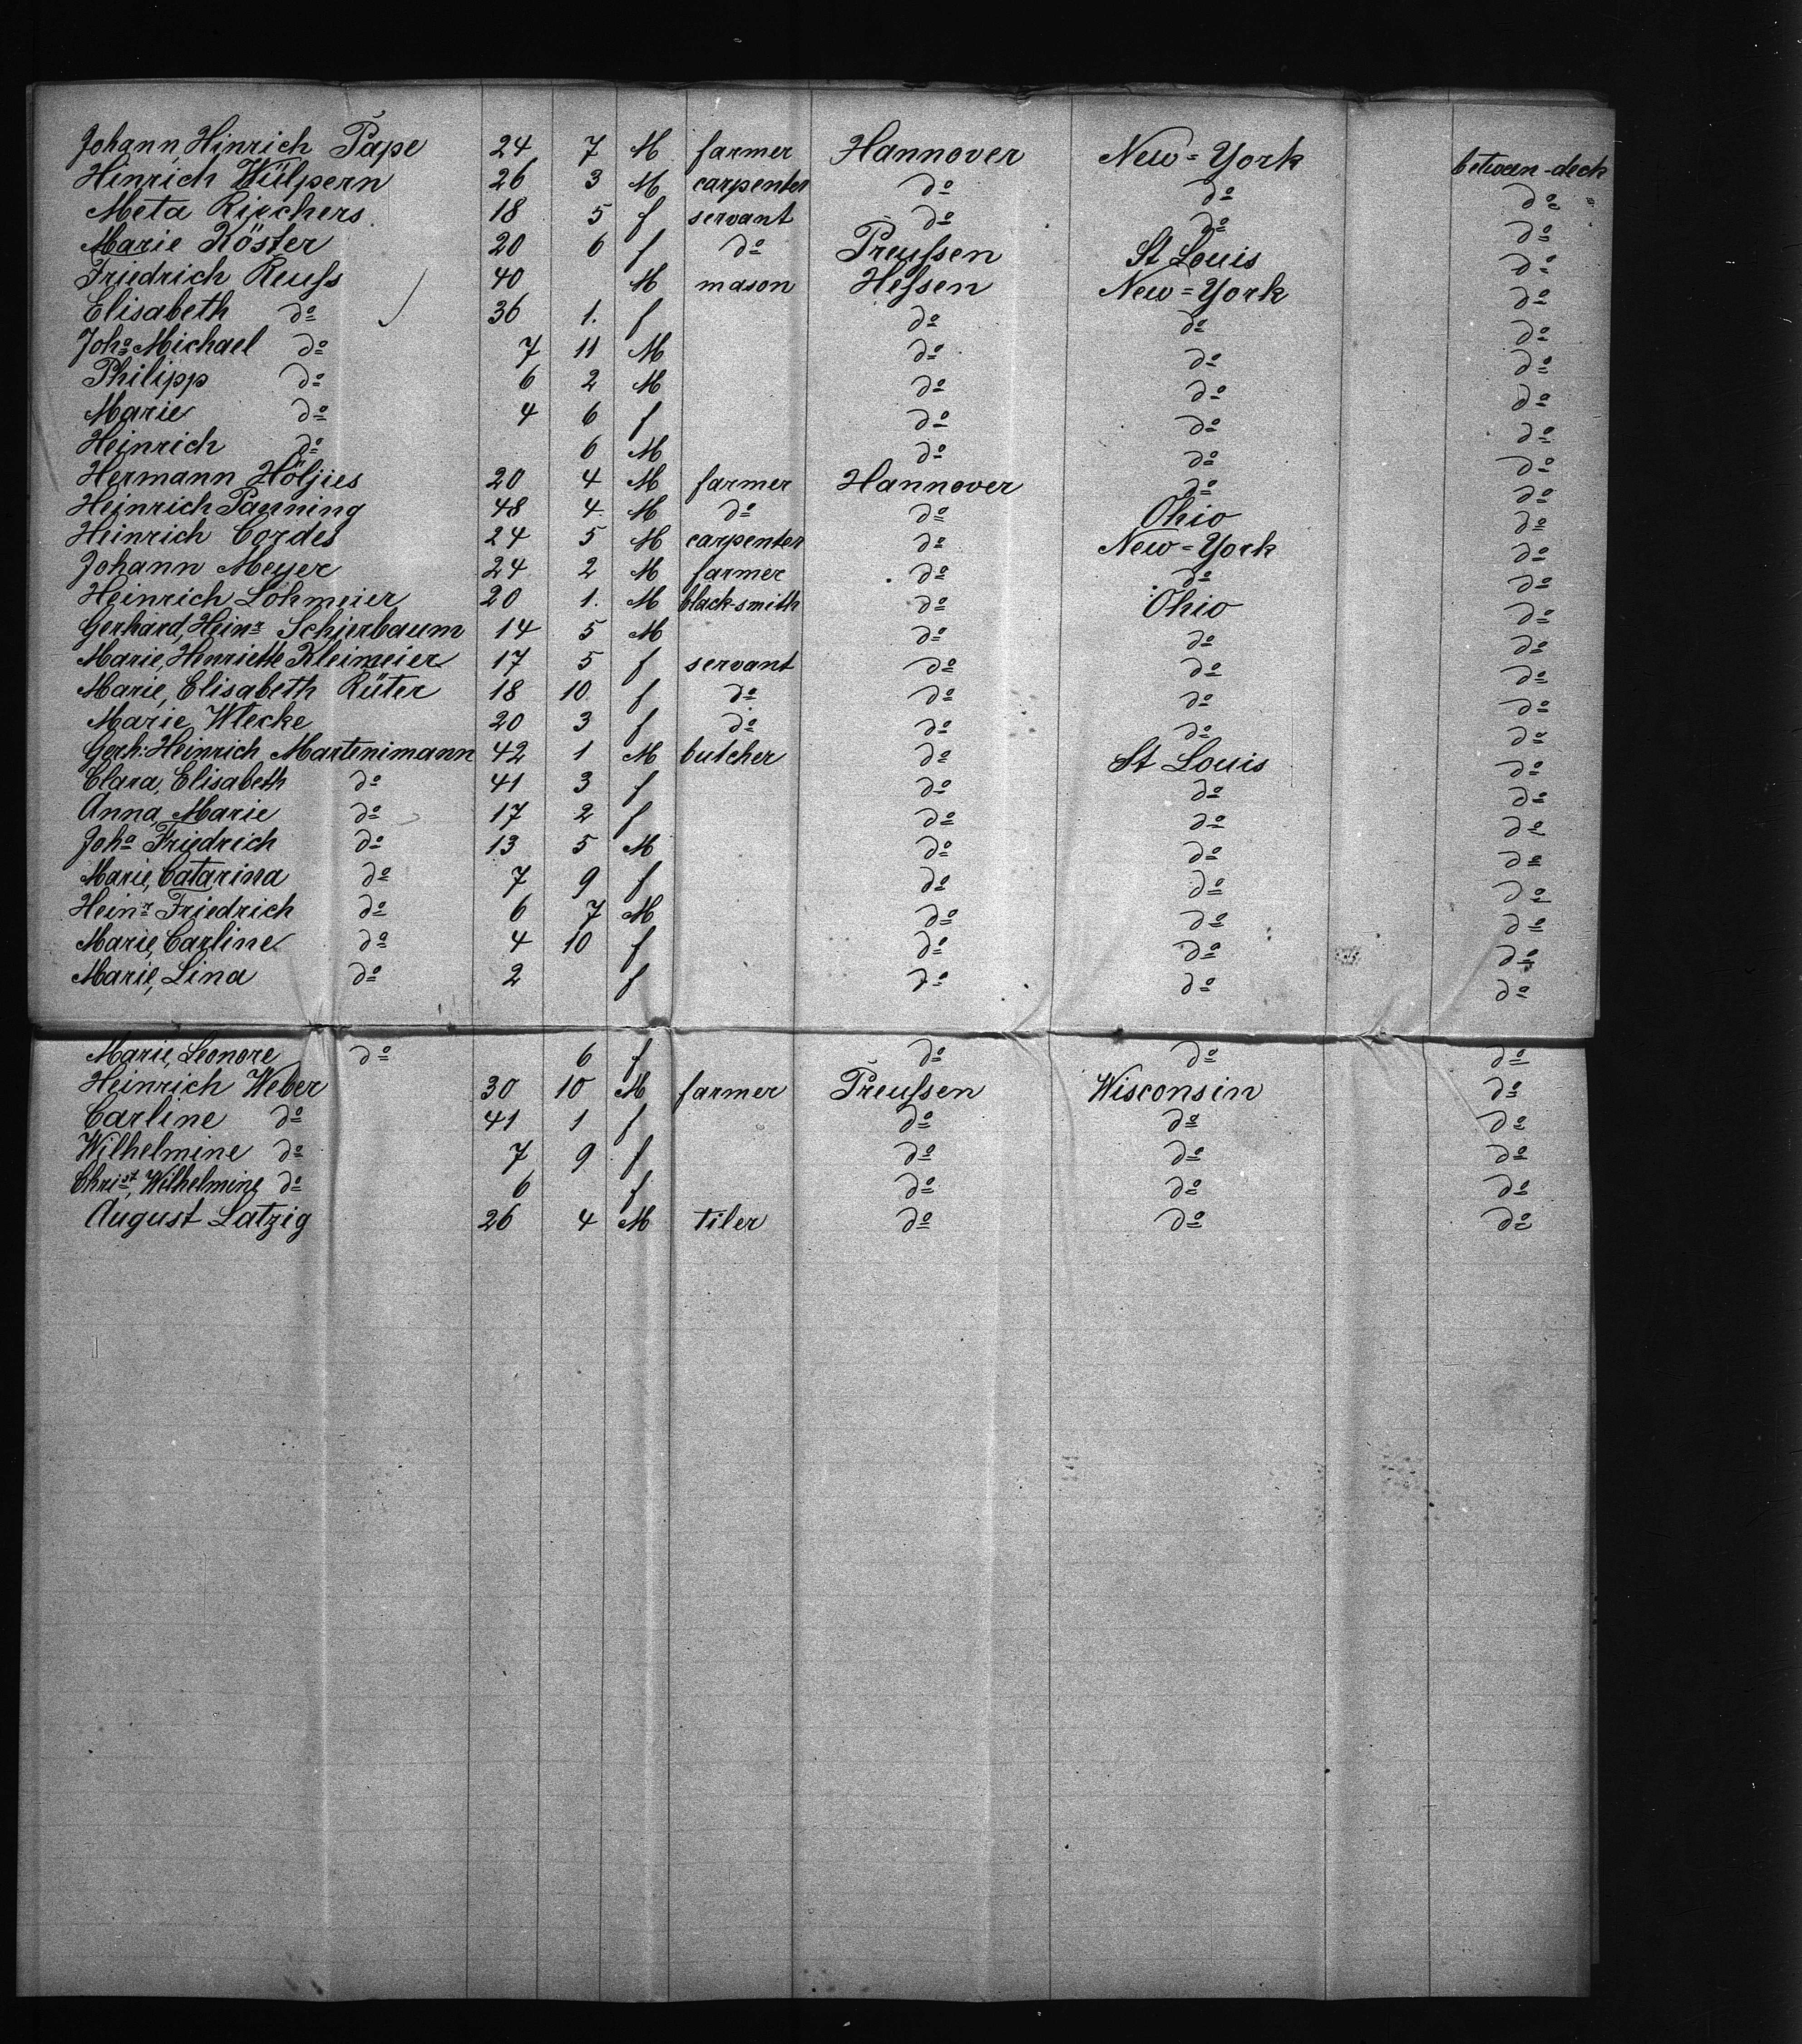 Johann, Hinrich Pape 24 7 M farmer Hannover New=York betwen-deck
Hinrich Wülpern 26 3 M carpenter do do do
Meta Ripchers 18 5 f servant do do do
Marie Köster 20 6 f do Preußen St Louis do
Friedrich Reuß 40 M mason Heßen New=York do
Elisabeth do 36 1. f do do do
Joho Michael do 7 11 M do do do
Philipp do 6 2 M do do do
Marie do 4 6 f do do do
Heinrich do 6 M do do do
Hermann Höljies 20 4 M farmer Hannover do do
Heinrich Panning 48 4 M do do Ohio do
Heinrich Cordes 24 5 M carpenter do New=York do
Johann Meyer 24 2 M farmer do do do
Heinrich Lohmeier 20 1. M black-smith do Ohio do
Gerhard, Heinr Schierbaum 14 5 M do do do
Marie, Henriette Kleimeier 17 5 f servant do do do
Marie, Elisabeth Rüter 18 10 f do do do do
Marie Wlecke 20 3 f do do do do
Gerh: Heinrich Martenimann 42 1 M butcher do St Louis do
Clara, Elisabeth do 41 3 f do do do
Anna, Marie do 17 2 f do do do
Joho Friedrich do 13 5 M do do do
Marie, Catarina do 7 9 f do do do
Heinr Friedrich do 6 7 M do do do
Marie, Carline do 4 10 f do do do
Marie, Lina do 2 f do do do
Marie, Leonore do 6 f do do do
Heinrich Weber 30 10 M farmer Preußen Wisconsin do
Carline do 41 1 f do do do
Wilhelmine do 7 9 f do do do
Christ, Wilhelmine do 6 f do do do
August Latzig 26 4 M tiler do do do